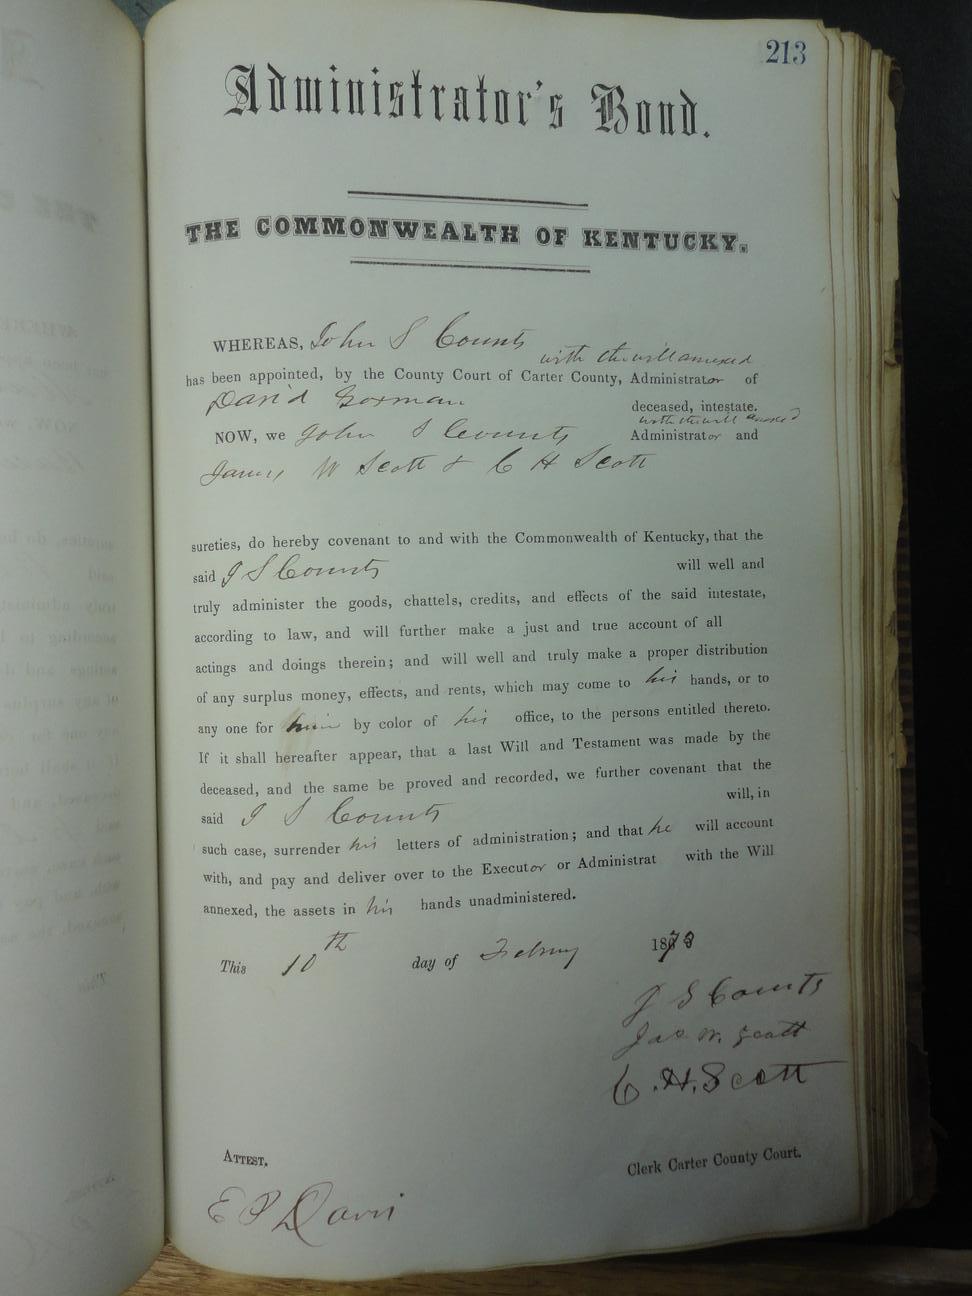 213
Administrator's Bond.
THE COMMONWEALTH OF KENTUCKY.
WHEREAS, John S Counts
with the will annexed
has been appointed, by the County Court of Carter County, Administrator of
David Gorman deceased, intestate.
with the will annexed
NOW, we John S Counts Administrator and
James W Scott & C H Scott
sureties, do hereby covenant to and with the Commonwealth of Kentucky, that the
said J S Counts will well and
truly administer the goods, chattels, credits, and effects of the said intestate,
according to law, and will further make a just and true account of all
actings and doings therein; and will well and truly make a proper distribution
of any surplus money, effects, and rents, which may come to his hands, or to
any one for him by color of his office, to the persons entitled thereto.
If it shall hereafter appear, that a last Will and Testament was made by the
deceased, and the same be proved and recorded, we further covenant that the
said J S Counts will, in
such case, surrender his letters of administration; and that he will account
with, and pay and deliver over to the Executor or Administrat with the Will
annexed, the assets in his hands unadministered.
This 10th day of Febry 1873
J S Counts
Jas W. Scott
C. H. Scott
ATTEST,
Clerk Carter County Court.
E P Davis